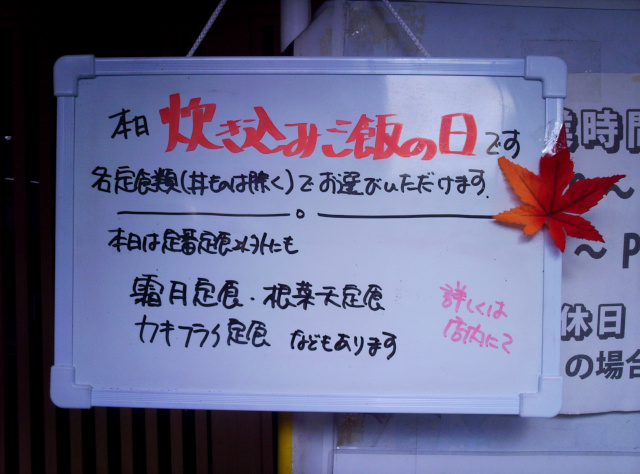 本日 炊き込みご飯の日です
各定食類(丼ものは除く)でお選びいただけます.
本日は定番定食以外にも
霜月定食・根菜天定食
カキフライ定食 などもあります
詳しくは
店内にて
業時間
～
～ P
休日
の場合